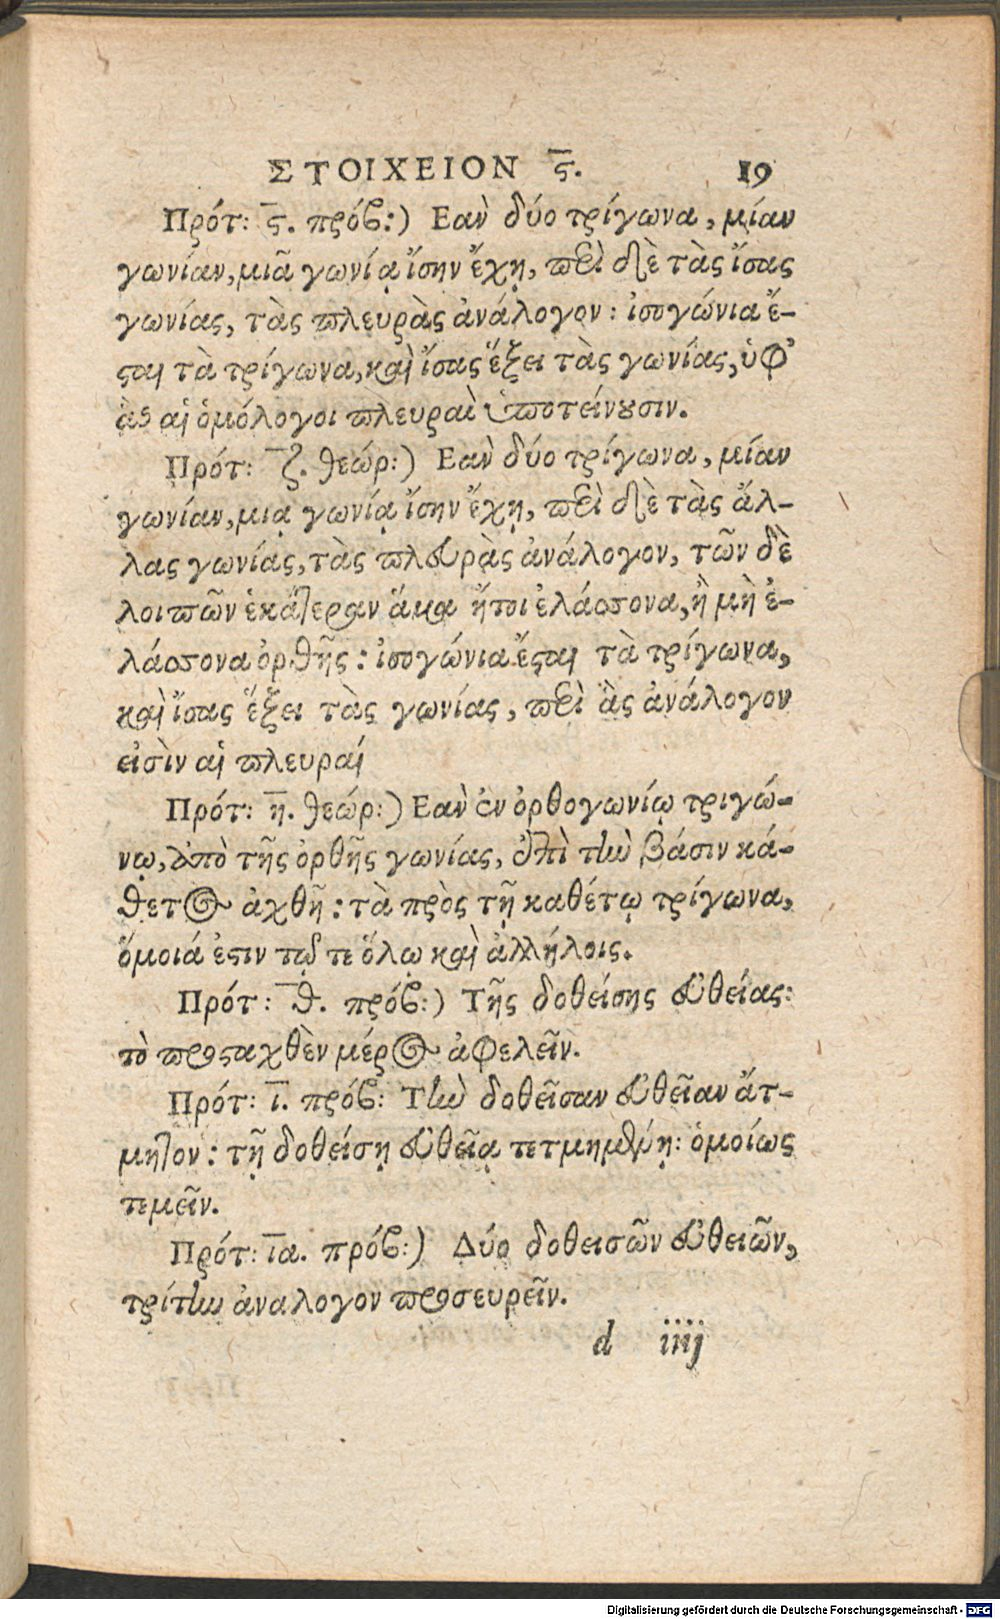 ΣΤΟΙΧΕΙΟΝ ϛ̅. 19
Πρότ: ϛ̅. πρόβ:) Εαν δύο τρίγωνα, μίαν
γωνίαν, μιᾶ γωνίᾳ ἴσην ἔχῃ, περὶ δὲ τὰς ἴσας
γωνίας, τὰς πλευρὰς ἀνάλογον: ἰσογώνια ἔ-
σται τὰ τρίγωνα, καὶ ἴσας ἕξει τὰς γωνίας, ὑφ'
ἃς αἱ ὁμόλογοι πλευραὶ ὑποτείνουσιν.
Πρότ: ζ̅. θεώρ:) Εαν δύο τρίγωνα, μίαν
γωνίαν, μιᾳ γωνίᾳ ἴσην ἔχῃ, περὶ δὲ τὰς ἄλ-
λας γωνίας, τὰς πλευρὰς ἀνάλογον, τῶν δὲ
λοιπῶν ἑκάτεραν ἅμα ἤτοι ἐλάσσονα, ἢ μὴ ἐ-
λάσσονα ὀρθῆς: ἰσογώνια ἔσται τὰ τρίγωνα,
καὶ ἴσας ἕξει τὰς γωνίας, περὶ ἃς ἀνάλογον
εἰσὶν αἱ πλευραί
Πρότ: η̅. θεώρ:) Εαν ἐν ὀρθογωνίῳ τριγώ-
νῳ, ἀπὸ τῆς ὀρθῆς γωνίας, ἐπὶ τὴν βάσιν κά-
θετος ἀχθῇ: τὰ πρὸς τῇ καθέτῳ τρίγωνα,
ὅμοιά ἐστιν τῷ τε ὅλῳ καὶ ἀλλήλοις.
Πρότ: θ̅. πρόβ:) Τῆς δοθείσης εὐθείας:
τὸ προσταχθὲν μέρος ἀφελεῖν.
Πρότ: ι̅. πρόβ: Τὴν δοθεῖσαν εὐθεῖαν ἄτ-
μητον: τῇ δοθείσῃ εὐθεῖᾳ τετμημένῃ: ὁμοίως
τεμεῖν.
Πρότ: ια̅. πρόβ:) Δύο δοθεισῶν εὐθειῶν,
τρίτην ἀναλογον προσευρεῖν.
d iiij
Digitalisierung gefördert durch die Deutsche Forschungsgemeinschaft - DFG